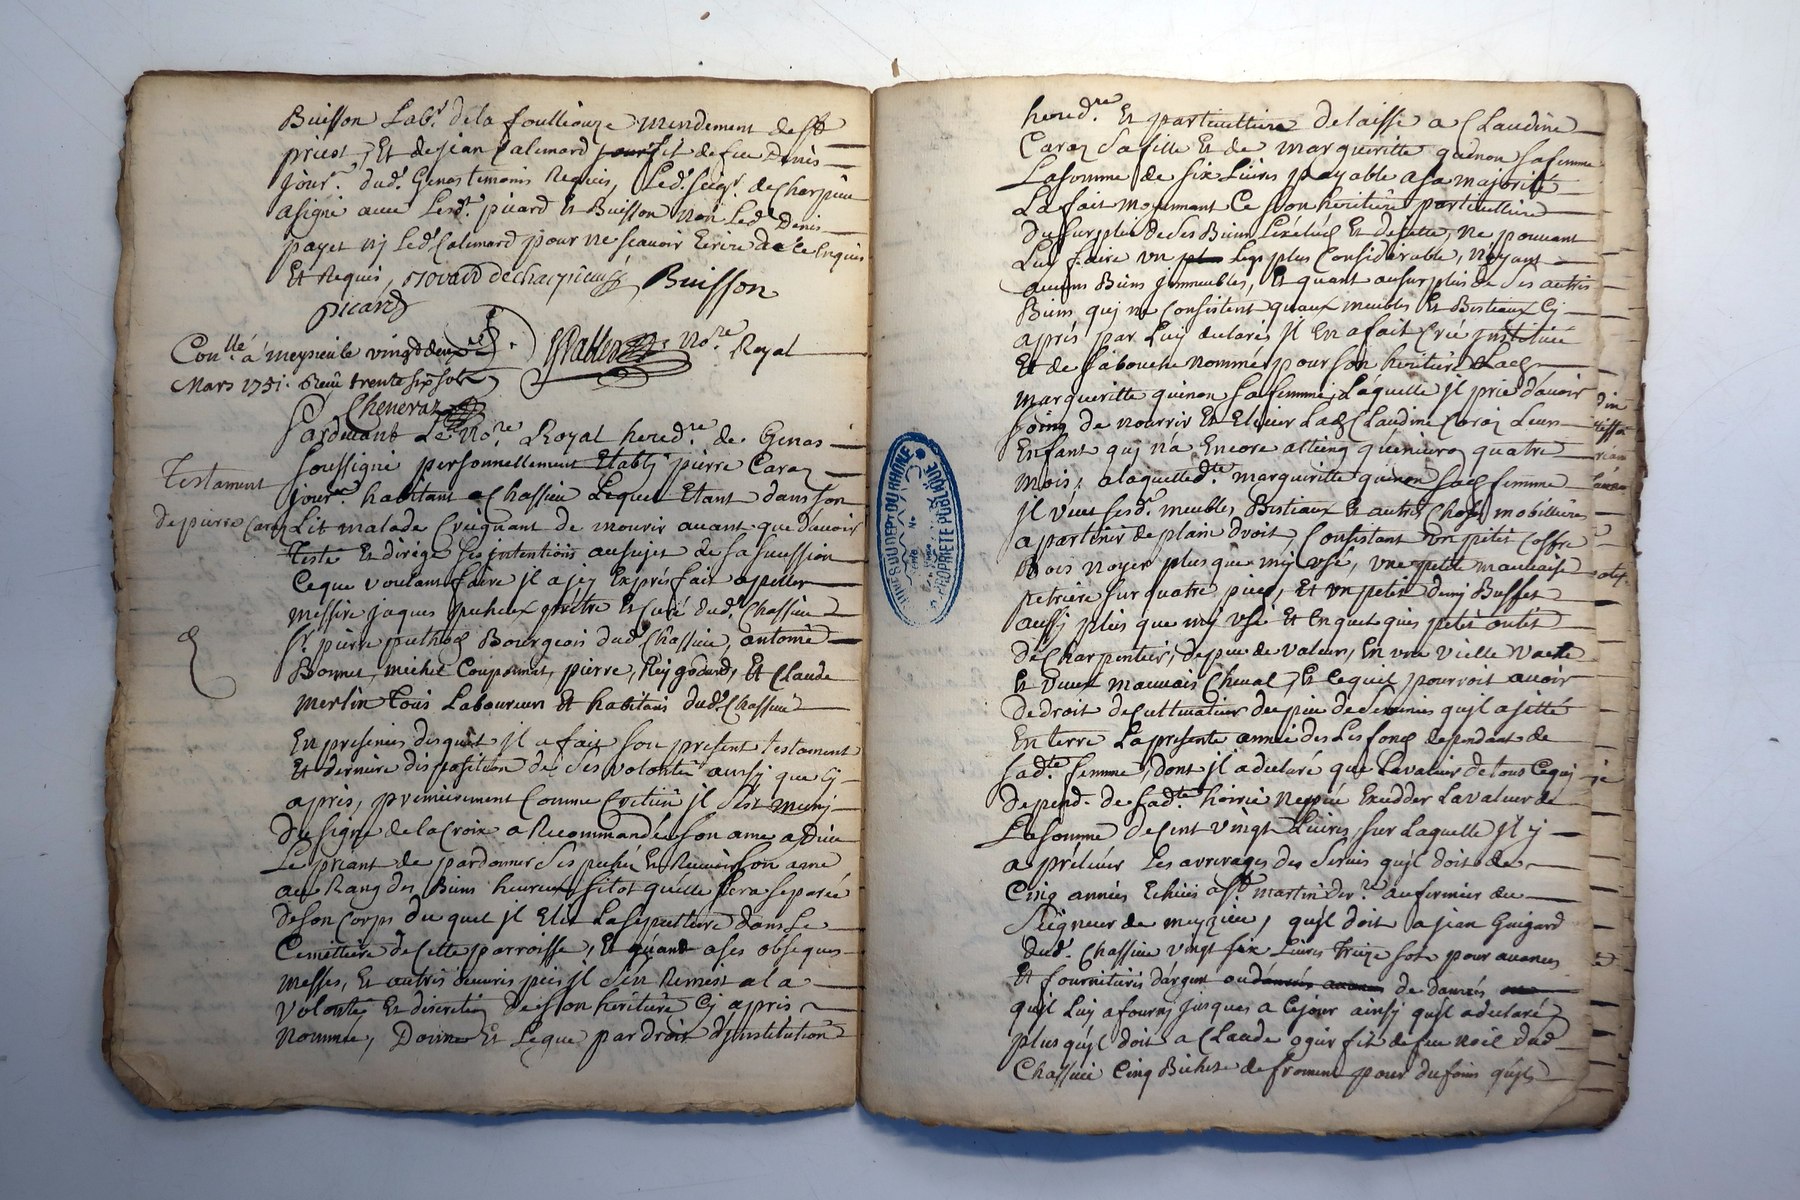 Buisson Labr. de la foulliouze mendement de St
priest, Et de jean Calemard fit de feu Denis
jourr. dud. Genas temoins Requis, Led. seigr. de Charpieu
a signé avec Lesd. picard Et Buisson non Led. Denis
payet nj Led. Calemard pour ne scavoir Ecrire de ce Enquis
Et Requis,
Buisson
picard
Conllé a meysieu le vingt deux
Mars 1751. Receu trente six sols
Nore Royal
Chenevaz
Pardevant Le Nore. Royal hered.re de Genas
soussigné personnellement Etablj pierre Caraz
Testament
de pierre Caraz
jourr. habitant a Chassieu Lequel Etant dans son
Lit malade Craignant de mourir avant que d'avoir
Testé Et dirigé ses jntentions au sujet de sa sucession
Ce que voulant faire il a jcy Exprés fait apeller
messire jaques prêtre Et Curé dud. Chassieu
Sr. pierre Bourgeois dud. Chassieu, antoine
Bonnet, michel Couponnat, pierre, Rey godard, Et Claude
merlin Tous Laboureurs Et habitans dud. Chassieu
En presences desquels jl a fait son present testament
Et derniere disposition de ses volontés ainsy que cy
aprés, premierement Comme Cretien jl s'est munj
Du signe de la Croix a Recommandé son ame a Dieu
Le priant de pardonner ses pechés Et Recevoir son ame
au Rang des Biens heureux sitot quelle sera separée
De son Corps du quel jl Elit La sepulture dans Le
Cemettiere de Cette parroisse, Et quand a ses obseques
messes, Et autres oeuvres pies jl s'en Remest a la
volonté Et discretion de son heritiere Cy aprés
Nommée, Donne Et Legue par droit d'jnstitution
hered.re Et particulliere delaisse a Claudine
Caraz sa fille Et de margueritte quinon sa femme
La somme de six Livres payable a sa majorité
La fait moyennant Ce son heritiere particulliere
Du surplus de ses Biens Et de sette, Ne pouvant
Luy faire un Legs plus Considerable, N'ayant
aucuns Biens jmmeubles, Et quant au surplus de ses autres
Biens quj ne Consistent quaux meubles Et Bestiaux Cy
aprés par Luy declarés jl En a fait Crée jnstituée
Et de sa bouche nommée pour son heritiere Lad.
margueritte quinon sa femme, Laquelle jl prie d'avoir
soing de nourrir Et Elever Lad. Claudine Caraz Leur
Enfant quj n'a Encore attieng quenviron quatre
mois; a laquelle d.te margueritte quinon sad. femme
jl veut sesd. meubles, Bestiaux Et autres Choses mobilliere
apartenir de plain droit, Consistant En un petit Coffre
Bois noyer plus que mj usé, une petite mauvaise
petriere sur quatre pieds, Et un petit demj Buffet
aussj plus que mj usé Et En quelques petits outils
de Charpentier, de peu de valeur, En une vielle vache
Et vieux mauvais Cheval, Et Ce quil pourroit avoir
De droit de Cultivateur du peu de semences qujl a jetté
En terre La presente année des Les fonds dependant de
sad.te femme, dont jl a declaré que La valeur de tous Ce quj
depend. de sad.te hoirie Excedder La valeur de
La somme de Cent vingt Livres, sur Laquelle jl y
a préléver Les arrerages des qujl doit de
Cinq années Echües a Sr. martin fermier du
Seigneur de meyzieu, qujl doit a jean Guigard
dud. Chassieu vingt six Livres Treize sols pour avances
Et fournitures d'argent ou de danrés
qujl Luy a fournj jusques a Ce jour ainsy qujl a declaré
plus qujl doit a Claude ogier fit de feu Noël dud
Chassieu Cinq Bichets de froment pour du foin qujl
PROPRIETE PUBLIQUE